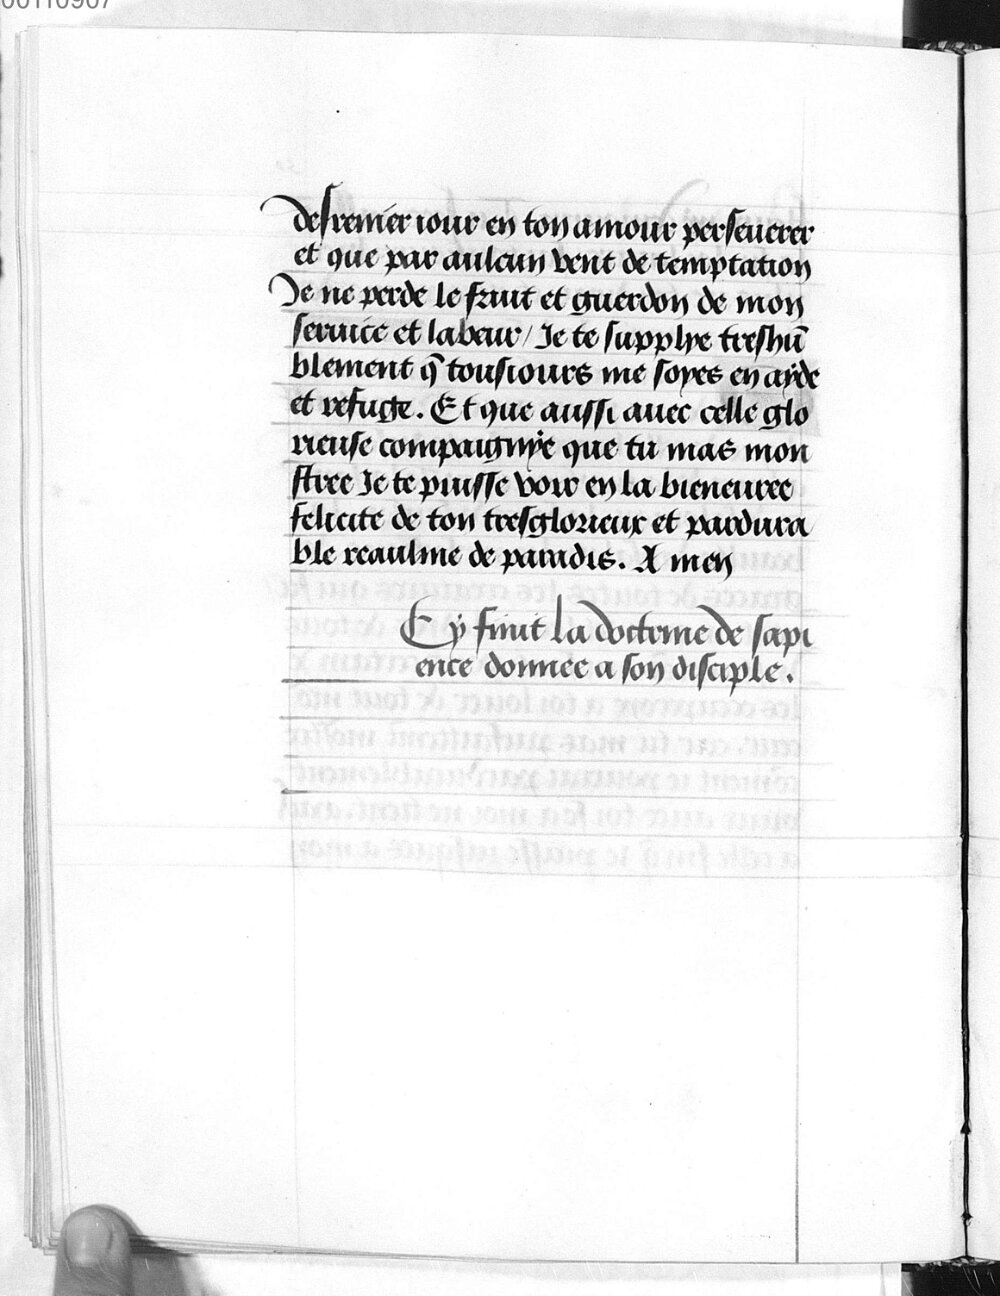 00110907
desrenier iour en ton amour perseuerer
et que par aulcun vent de temptation
Je ne perde le fruit et guerdon de mon
seruice et labeur / Je te supplye treshū
blement q̄ tousiours me soyes en ayde
et refuge. Et que aussi auec celle glo
rieuse compaignye que tu mas mon
stree Je te puisse voir en la bieneuree
felicite de ton tresglorieux et pardura
ble reaulme de paradis. Amen
Cy finit la doctrine de sapi
ence donnee a son disciple.